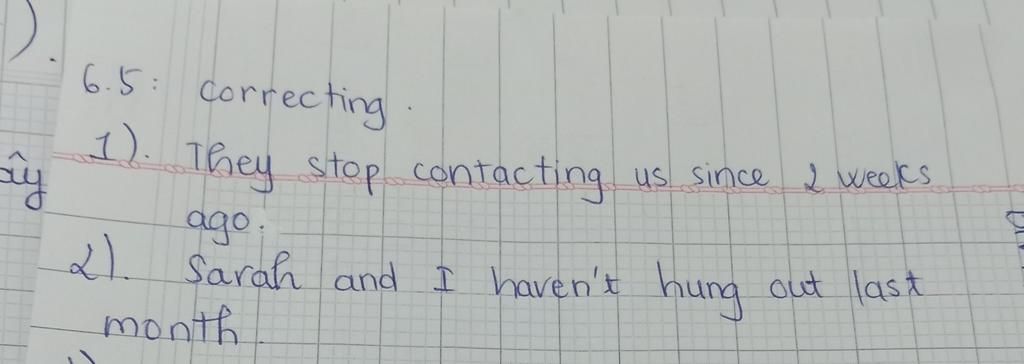 ).
6.5: correcting.
1). They stop contacting us since 2 weeks
ây
ago.
2). Sarah and I haven't hung out last
month.